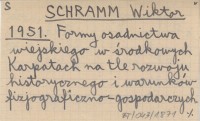 S
SCHRAMM Wiktor
1951. Formy osadnictwa
wiejskiego w środkowych
Karpatach na tle rozwoju
historycznego i warunków
fizjograficzno-gospodarczych